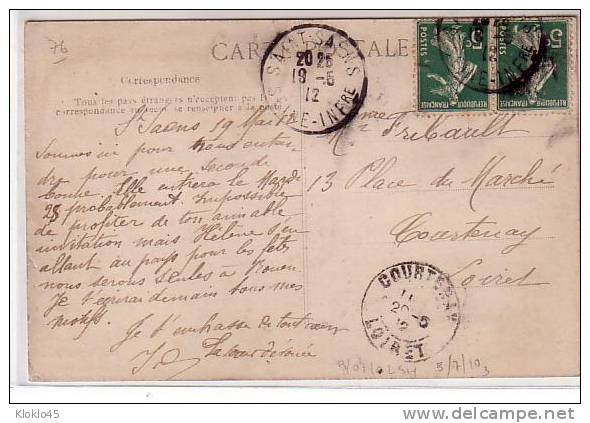 76
CARTE POSTALE
Correspondance
Tous les pays étrangers n'acceptent pas la
correspondance au recto, se renseigner à la poste
SAINT-SAENS
20 25
19 - 5
12
SEINE-INFRE
5c POSTES
REPUBLIQUE FRANÇAISE
5c POSTES
REPUBLIQUE FRANÇAISE
St Saens 19 Mai 12
Sommes ici pour nous enten
dre pour une seconde
bonne. Elle entrera le Mardi
28 probablement. Impossible
de profiter de ton aimable
invitation mais Hélène s'en
allant au pays pour les fêtes
nous serons seules à Rouen
Je t'écrirai demain tous mes
motifs.
Je t'embrasse de tout coeur
Ta
Mme Fribault
13 Place du Marché
Courtenay
Loiret
COURTENAY
20 - 5
LOIRET
5/7/103
Kloklo45
www.delcampe.net